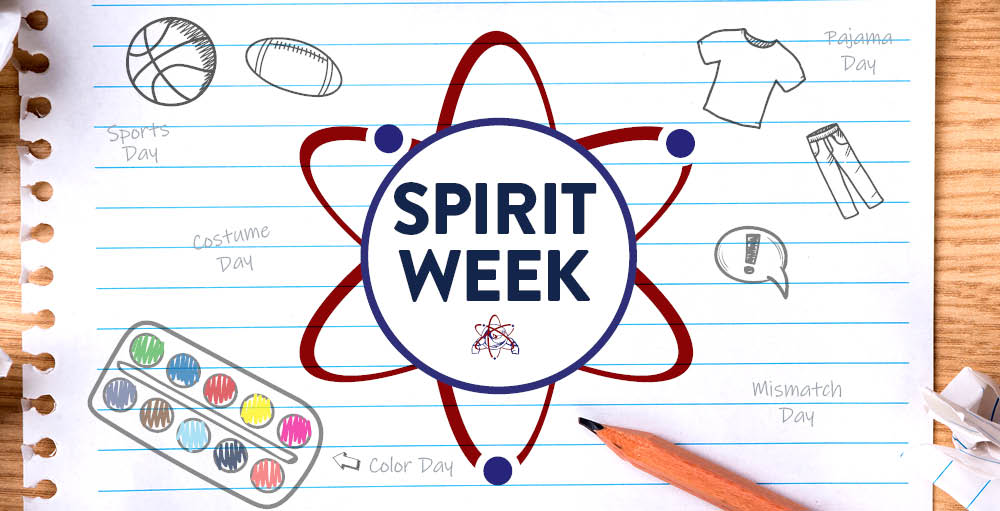 Pajama
Day
Sports
Day
SPIRIT
WEEK
Costume
Day
!
Mismatch
Day
Color Day